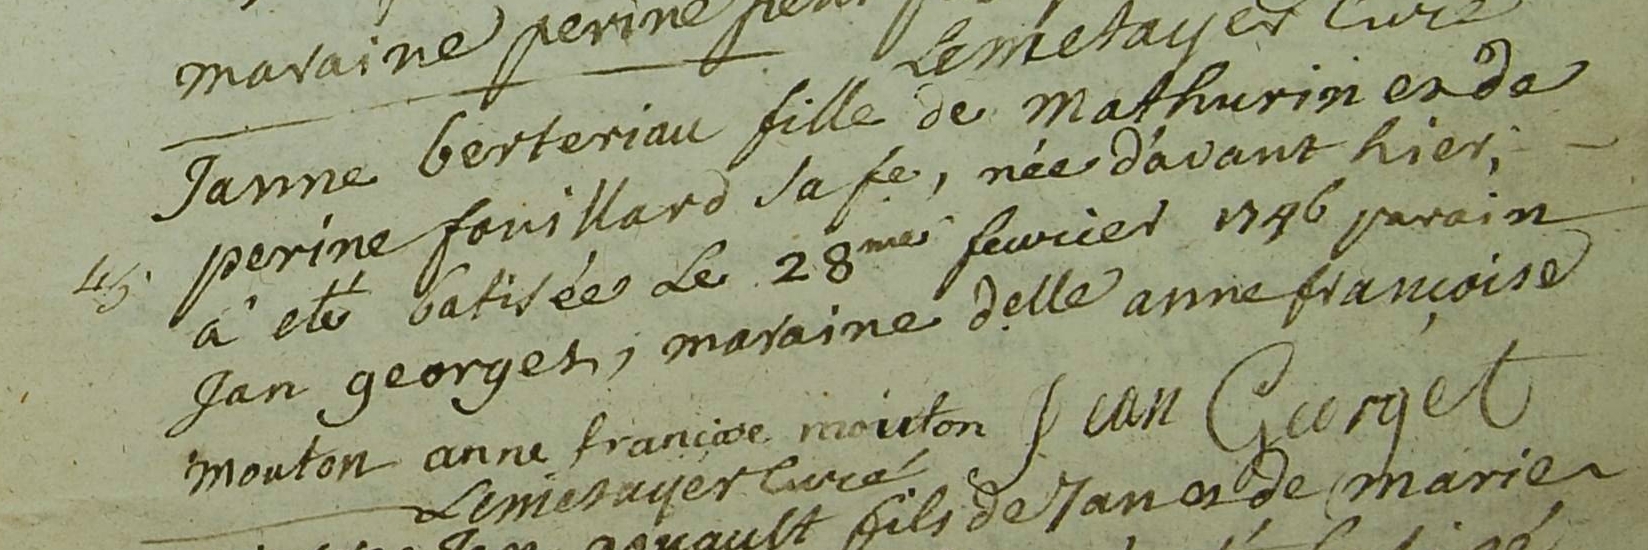 maraine perine
Lemetayer Curé
Janne berteriau fille de Mathurin et de
perine fouillard sa fe, née d'avant hier,
45 a été batisée Le 28me feuvrier 1746 parain
Jan georget, maraine delle anne françoise
mouton anne francoise mouton Jean Georget
Lemetayer Curé
Jan gouault fils de Jan et de marie